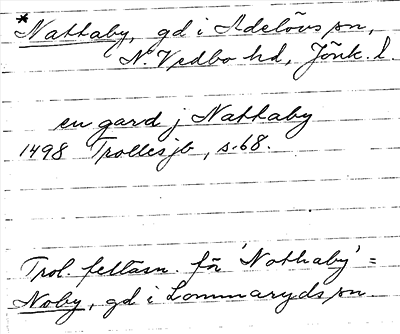 *Nattaby, gd i Adelövs sn,
N. Vedbo hd, Jönk. l.
en gard j Nattaby
1498 Trolles jb, s. 68.
Trol. feltasn. för 'Nothaby' =
Noby, gd i Lommaryds sn.